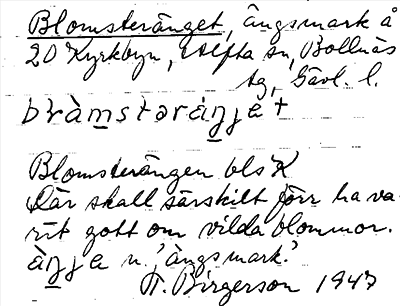 Blomsteränget, ängsmark å
20 Kyrkbyn, Alfta sn, Bollnäs
tg, Gävl. l.
bràm̲stəràŋ̲jet
Blomsterängen bls K
Där skall särskilt förr ha va-
rit gott om vilda blommor.
àŋ̲je n. 'ängsmark'.
H. Birgerson 1947